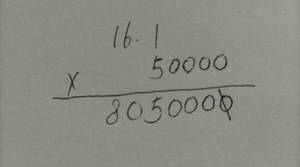 16.1
× 50000
8050000